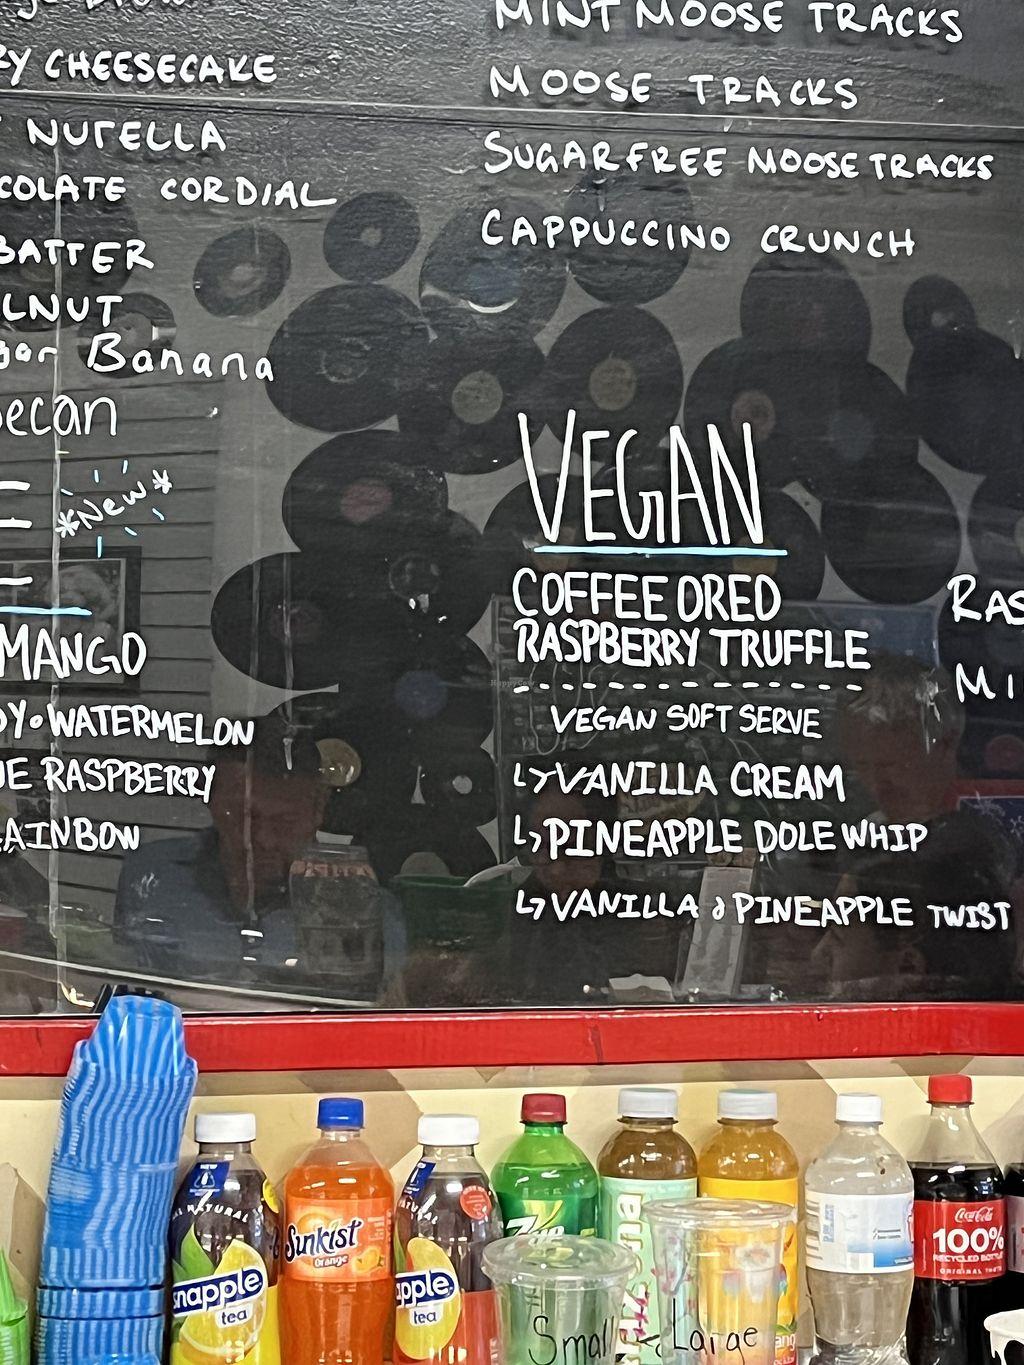 MINT MOOSE TRACKS
CHEESECAKE
MOOSE TRACKS
NUTELLA
SUGAR FREE MOOSE TRACKS
CORDIAL
CAPPUCCINO CRUNCH
BATTER
Banana
*New*
VEGAN
COFFEE OREO
RASPBERRY TRUFFLE
MANGO
VEGAN SOFT SERVE
WATERMELON
VANILLA CREAM
RASPBERRY
PINEAPPLE DOLE WHIP
RAINBOW
VANILLA & PINEAPPLE TWIST
HappyCow
NATURAL
Snapple
tea
Sunkist
Orange
apple
tea
Coca-Cola
100%
RECYCLED BOTTLE
ORIGINAL TASTE
Small
Large